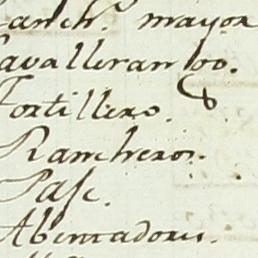 anch.º mayor
Cavalleran oo.
Tortillero.
Rancheros.
Pasc.
Abentadores.